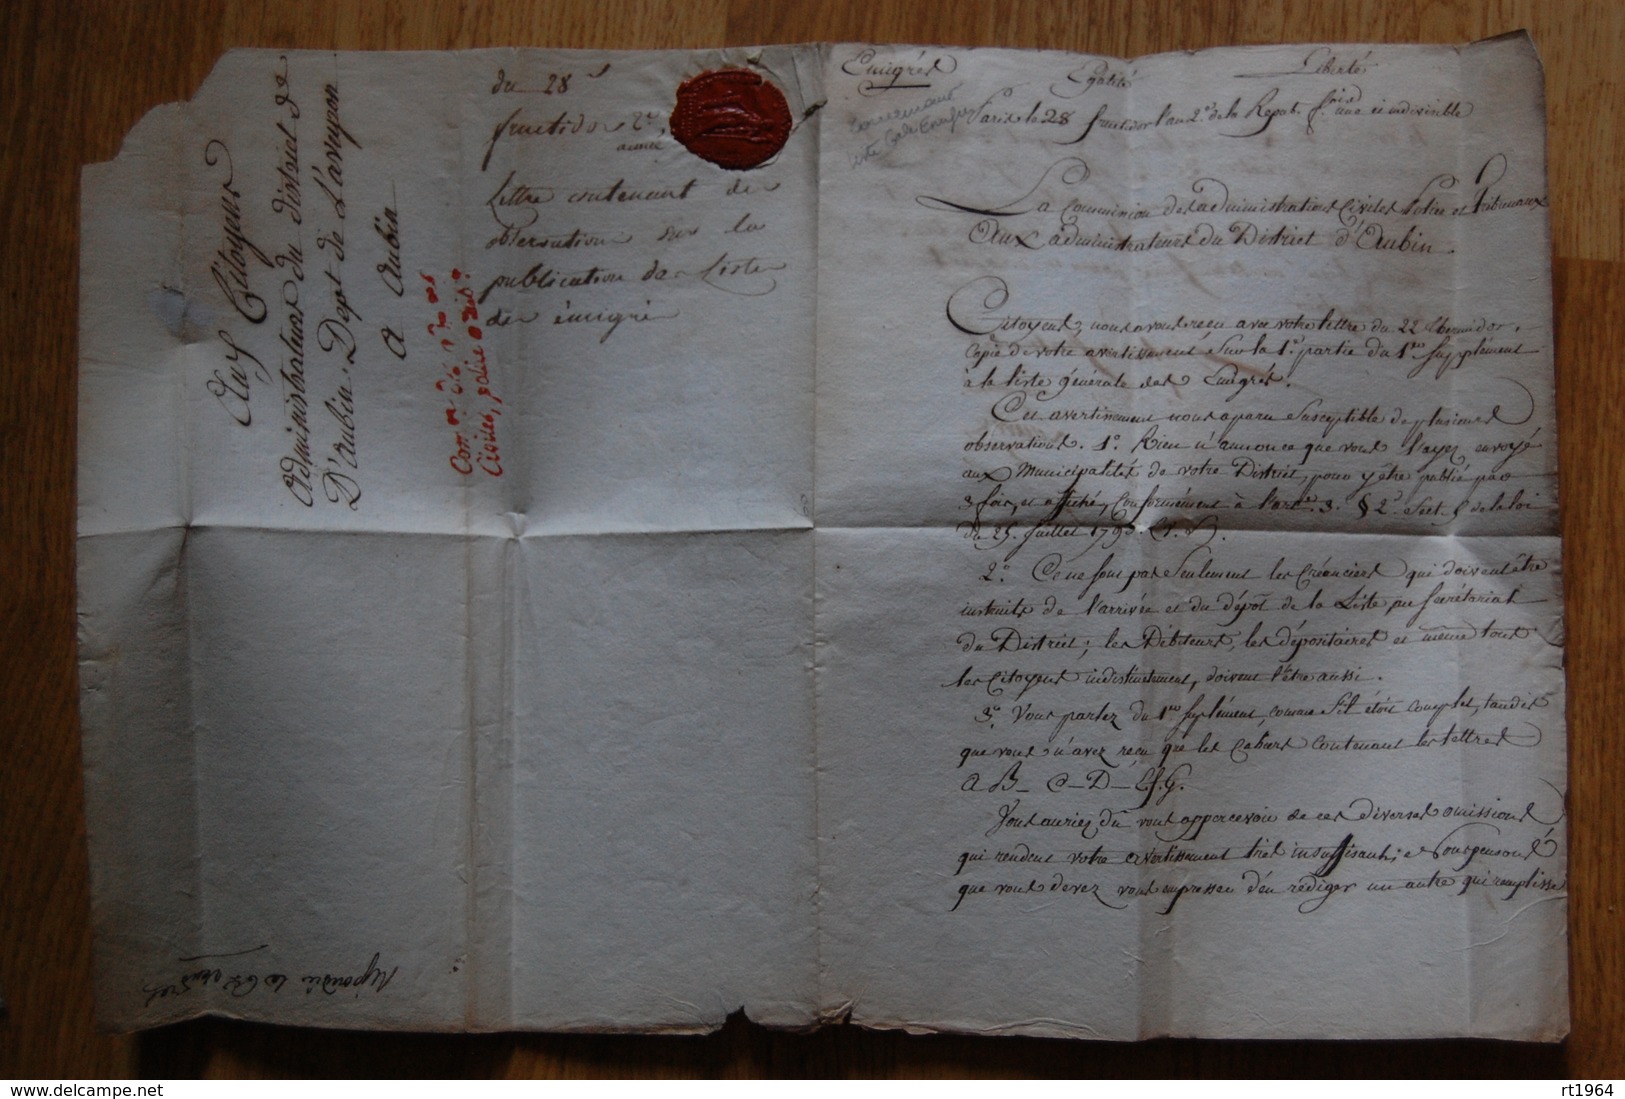 Aux Citoyens
Administrateurs du district de
D'aubin. Dept de L'aveyron
A aubin
Répondu le
du 28
fructidor 2e
année
Lettre contenant des
observations sur la
publication des Listes
des émigrés
Émigrés
Égalité
Liberté
Paris le 28 fructidor l'an 2e de la Repub. f.oise une et indivisible
La Commission des administrations Civiles Police et Tribunaux
Aux administrateurs du District d'Aubin.
Citoyens, nous avons reçu avec votre lettre du 22 thermidor
copie de votre avertissement sur la 1e partie du 1er supplément
à la liste générale des Émigrés.
Cet avertissement nous a paru susceptible de plusieurs
observations. 1o. Rien n'annonce que vous l'ayez envoyé
aux Municipalités de votre District, pour y être publié par
3 fois, et affiché, conformément à l'art. 3. § 2. Sect. 5 de la loi
du 25. Juillet 1793.
2o. Ce ne sont pas seulement les créanciers qui doivent être
instruits de l'arrivée et du dépôt de la Liste, au Secrétariat
du District; les Débiteurs, les dépositaires et même tous
les Citoyens indistinctement, doivent l'être aussi.
3o. Vous parlez du 1er suplément, comme s'il étoit complet, tandis
que vous n'avez reçu que les cahiers contenant les lettres
A B_ C_ D_ E. f. G.
Vous auriez dû vous appercevoir de ces diverses omissions
qui rendent votre avertissement très insuffisant; et nous pensons
que vous devez vous empresser d'en rédiger un autre qui remplisse
rt1964